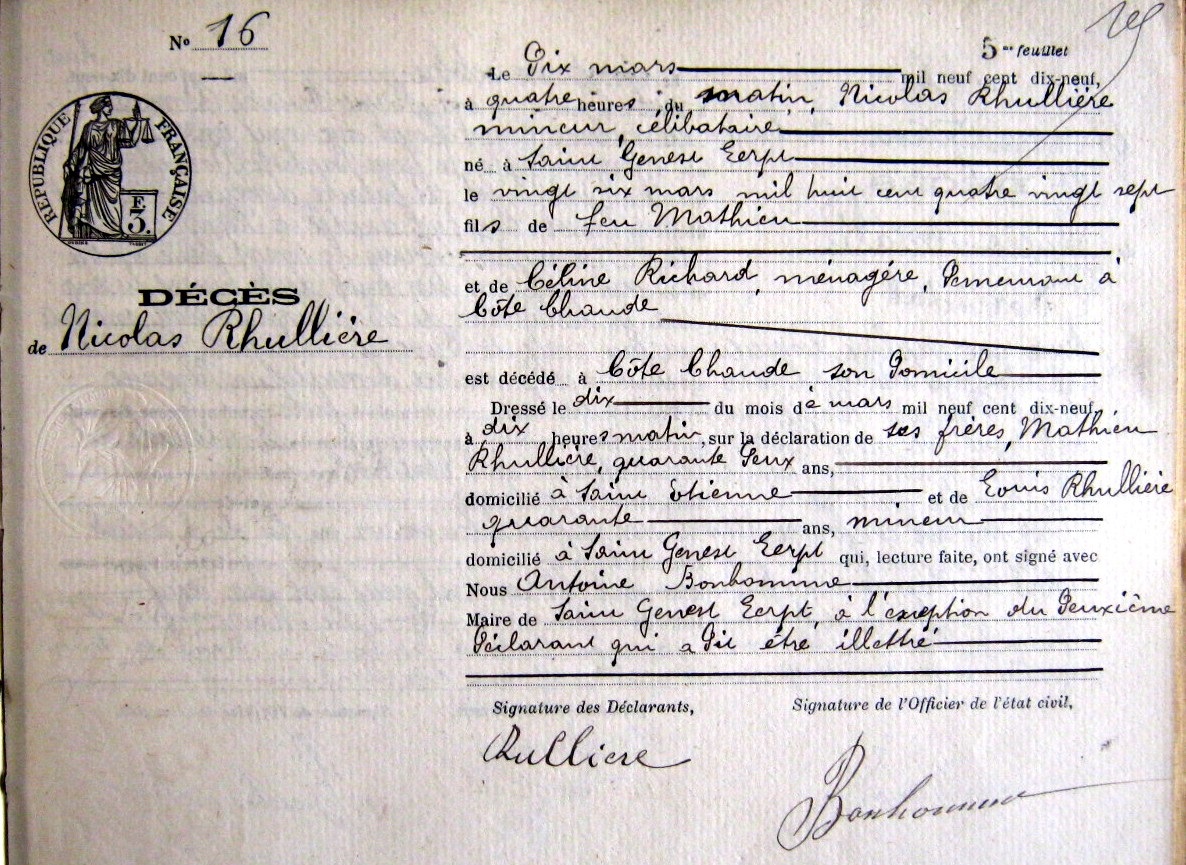 No 16
5me feuillet
Le Dix mars mil neuf cent dix-neuf,
à quatre heures du matin, Nicolas Rhullière
mineur, célibataire
né à Saint Genest Lerpt
le vingt six mars mil huit cent quatre vingt sept
fils de feu Mathieu
et de Céline Richard, ménagère, Demeurant à
Côte Chaude
est décédé à Côte Chaude son Domicile
Dressé le dix du mois de mars mil neuf cent dix-neuf,
à dix heures matin, sur la déclaration de ses frères, Mathieu
Rhullière, quarante Deux ans,
domicilié à Saint Etienne et de Louis Rhullière
quarante ans, mineur
domicilié à Saint Genest Lerpt qui, lecture faite, ont signé avec
Nous Antoine Bonhomme
Maire de Saint Genest Lerpt, à l'exception du Deuxième
Déclarant qui a Dit être illettré
Signature des Déclarants,
Signature de l'Officier de l'état civil,
Rulliere
Bonhomme
REPUBLIQUE FRANÇAISE.
F.
3.
DÉCÈS
de Nicolas Rhullière